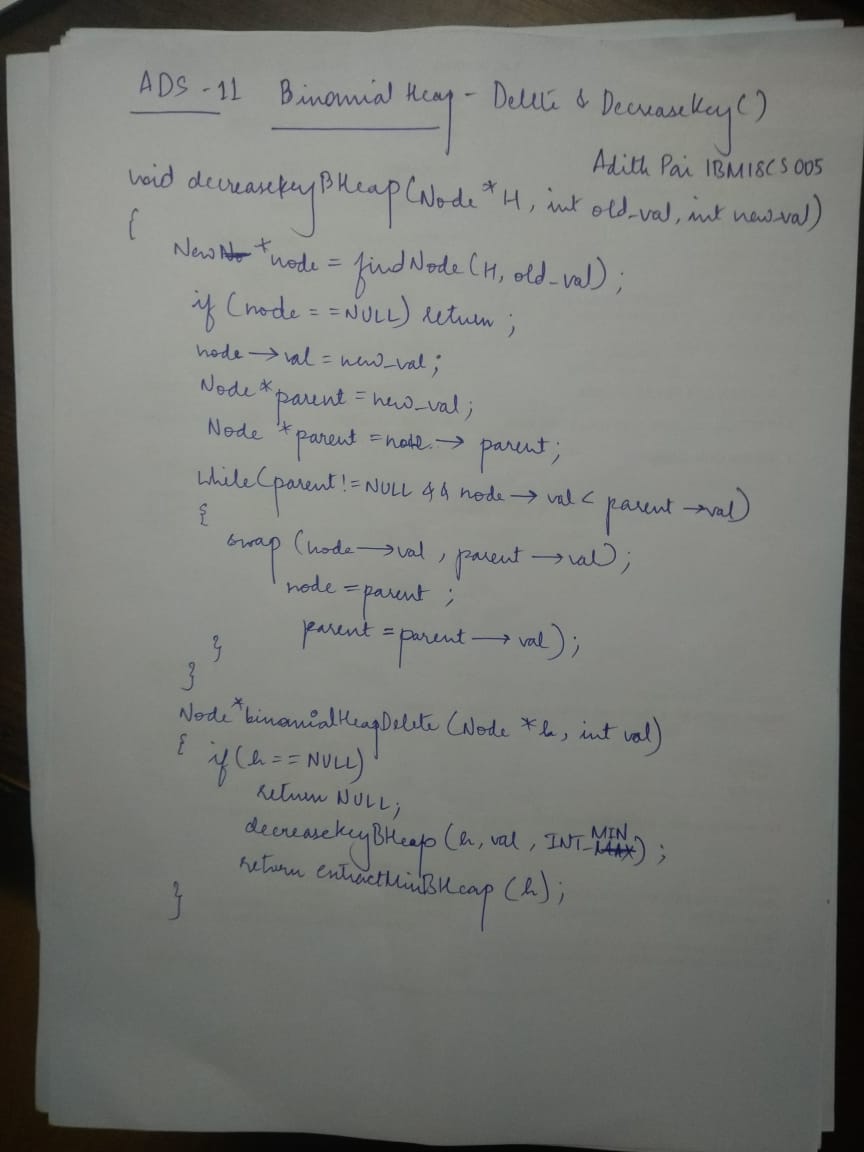 ADS - 11 Binomial Heap - Delete & DecreaseKey()
Adith Pai 1BM18CS005
void decreasekeyBHeap(Node *H, int old_val, int new_val)
{
New *node = findNode(H, old_val);
if (node == NULL) return;
node → val = new_val;
Node *parent = new_val;
Node *parent = node → parent;
while(parent != NULL && node → val < parent → val)
{
swap (node → val, parent → val);
node = parent;
parent = parent → val);
}
}
Node *binomialHeapDelete (Node *h, int val)
{ if (h == NULL)
return NULL;
decreasekeyBHeap (h, val, INT_MIN);
return extractMinBHeap (h);
}